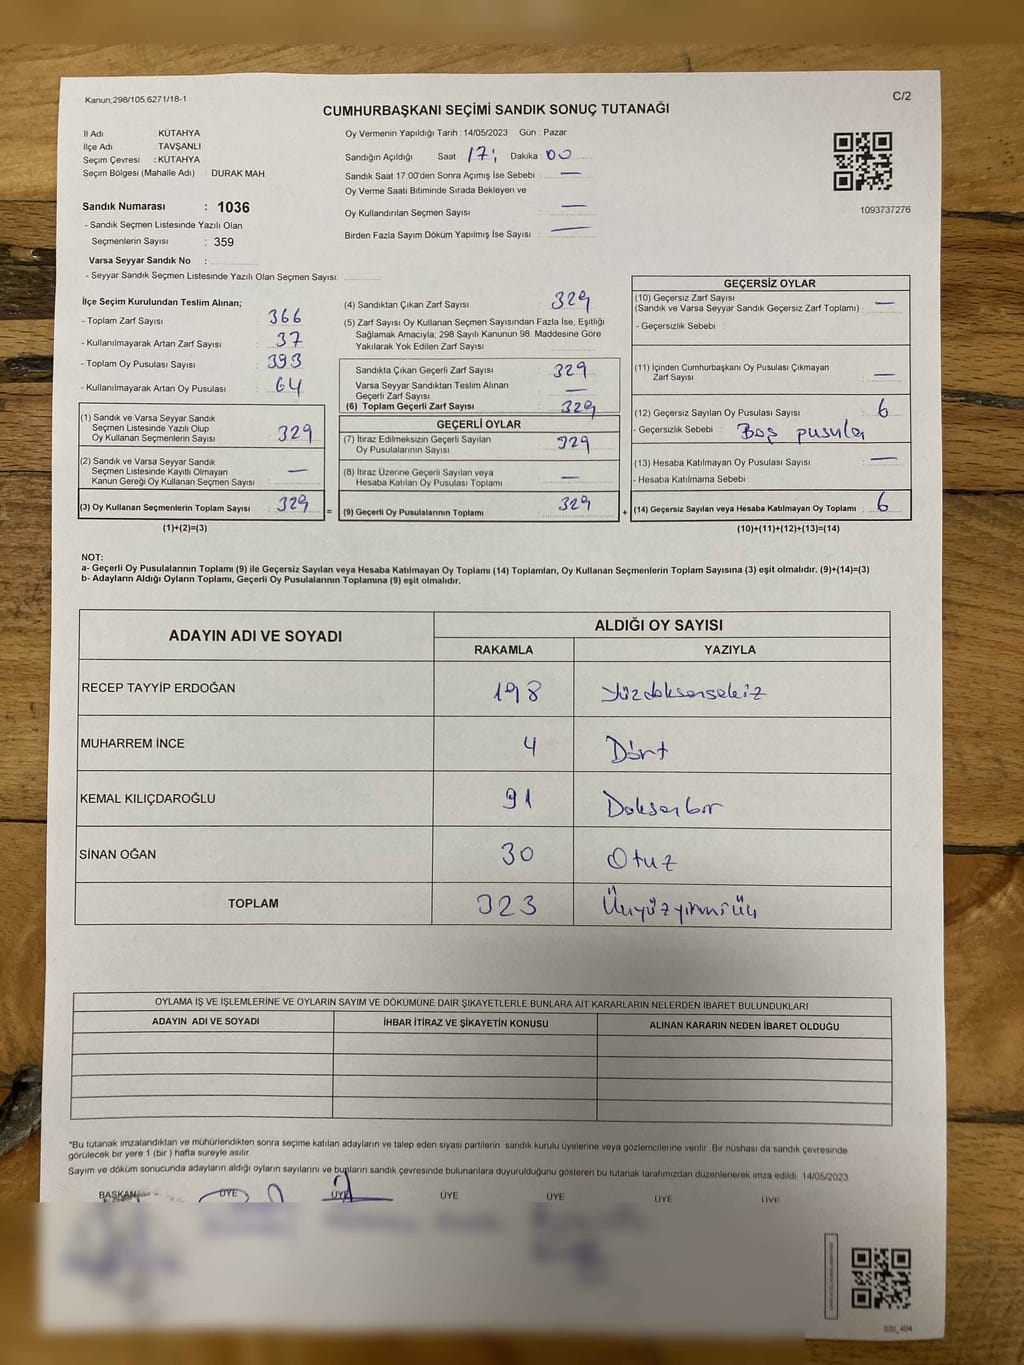 Kanun;298/105,6271/18-1
C/2
CUMHURBAŞKANI SEÇİMİ SANDIK SONUÇ TUTANAĞI
İl Adı : KÜTAHYA
İlçe Adı : TAVŞANLI
Seçim Çevresi : KÜTAHYA
Seçim Bölgesi (Mahalle Adı) : DURAK MAH.
Sandık Numarası : 1036
- Sandık Seçmen Listesinde Yazılı Olan
Seçmenlerin Sayısı : 359
Varsa Seyyar Sandık No :
- Seyyar Sandık Seçmen Listesinde Yazılı Olan Seçmen Sayısı:
Oy Vermenin Yapıldığı Tarih : 14/05/2023 Gün : Pazar
Sandığın Açıldığı Saat 17: Dakika : 00
Sandık Saat 17:00'den Sonra Açımış İse Sebebi : —
Oy Verme Saati Bitiminde Sırada Bekleyen ve
Oy Kullandırılan Seçmen Sayısı : —
Birden Fazla Sayım Döküm Yapılmış İse Sayısı : —
1093737276
İlçe Seçim Kurulundan Teslim Alınan;
- Toplam Zarf Sayısı : 366
- Kullanılmayarak Artan Zarf Sayısı : 37
- Toplam Oy Pusulası Sayısı : 393
- Kullanılmayarak Artan Oy Pusulası : 64
(1) Sandık ve Varsa Seyyar Sandık
Seçmen Listesinde Yazılı Olup
Oy Kullanan Seçmenlerin Sayısı : 329
(2) Sandık ve Varsa Seyyar Sandık
Seçmen Listesinde Kayıtlı Olmayan
Kanun Gereği Oy Kullanan Seçmen Sayısı : —
(3) Oy Kullanan Seçmenlerin Toplam Sayısı : 329
(1)+(2)=(3)
(4) Sandıktan Çıkan Zarf Sayısı : 329
(5) Zarf Sayısı Oy Kullanan Seçmen Sayısından Fazla İse, Eşitliği
Sağlamak Amacıyla; 298 Sayılı Kanunun 98. Maddesine Göre
Yakılarak Yok Edilen Zarf Sayısı :
Sandıkta Çıkan Geçerli Zarf Sayısı : 329
Varsa Seyyar Sandıktan Teslim Alınan
Geçerli Zarf Sayısı : —
(6) Toplam Geçerli Zarf Sayısı : 329
GEÇERLİ OYLAR
(7) İtiraz Edilmeksizin Geçerli Sayılan
Oy Pusulalarının Sayısı : 329
(8) İtiraz Üzerine Geçerli Sayılan veya
Hesaba Katılan Oy Pusulası Toplamı : —
= (9) Geçerli Oy Pusulalarının Toplamı : 329
GEÇERSİZ OYLAR
(10) Geçersiz Zarf Sayısı
(Sandık ve Varsa Seyyar Sandık Geçersiz Zarf Toplamı) : —
- Geçersizlik Sebebi :
(11) İçinden Cumhurbaşkanı Oy Pusulası Çıkmayan
Zarf Sayısı : —
(12) Geçersiz Sayılan Oy Pusulası Sayısı : 6
- Geçersizlik Sebebi : Boş pusula
(13) Hesaba Katılmayan Oy Pusulası Sayısı : —
- Hesaba Katılmama Sebebi
+ (14) Geçersiz Sayılan veya Hesaba Katılmayan Oy Toplamı : 6
(10)+(11)+(12)+(13)=(14)
NOT:
a- Geçerli Oy Pusulalarının Toplamı (9) ile Geçersiz Sayılan veya Hesaba Katılmayan Oy Toplamı (14) Toplamları, Oy Kullanan Seçmenlerin Toplam Sayısına (3) eşit olmalıdır. (9)+(14)=(3)
b- Adayların Aldığı Oyların Toplamı, Geçerli Oy Pusulalarının Toplamına (9) eşit olmalıdır.
ADAYIN ADI VE SOYADI
ALDIĞI OY SAYISI
RAKAMLA YAZIYLA
RECEP TAYYİP ERDOĞAN 198 Yüzdoksansekiz
MUHARREM İNCE 4 Dört
KEMAL KILIÇDAROĞLU 91 Doksanbir
SİNAN OĞAN 30 Otuz
TOPLAM 323 Üçyüzyirmiüç
OYLAMA İŞ VE İŞLEMLERİNE VE OYLARIN SAYIM VE DÖKÜMÜNE DAİR ŞİKAYETLERLE BUNLARA AİT KARARLARIN NELERDEN İBARET BULUNDUKLARI
ADAYIN ADI VE SOYADI İHBAR İTİRAZ VE ŞİKAYETİN KONUSU ALINAN KARARIN NEDEN İBARET OLDUĞU
*Bu tutanak imzalandıktan ve mühürlendikten sonra seçime katılan adayların ve talep eden siyasi partilerin sandık kurulu üyelerine veya gözlemcilerine verilir. Bir nüshası da sandık çevresinde
görülecek bir yere 1 (bir ) hafta süreyle asılır.
Sayım ve döküm sonucunda adayların aldığı oyların sayılarını ve bunların sandık çevresinde bulunanlara duyurulduğunu gösteren bu tutanak tarafımızdan düzenlenerek imza edildi. 14/05/2023
BAŞKAN ÜYE ÜYE ÜYE ÜYE ÜYE ÜYE